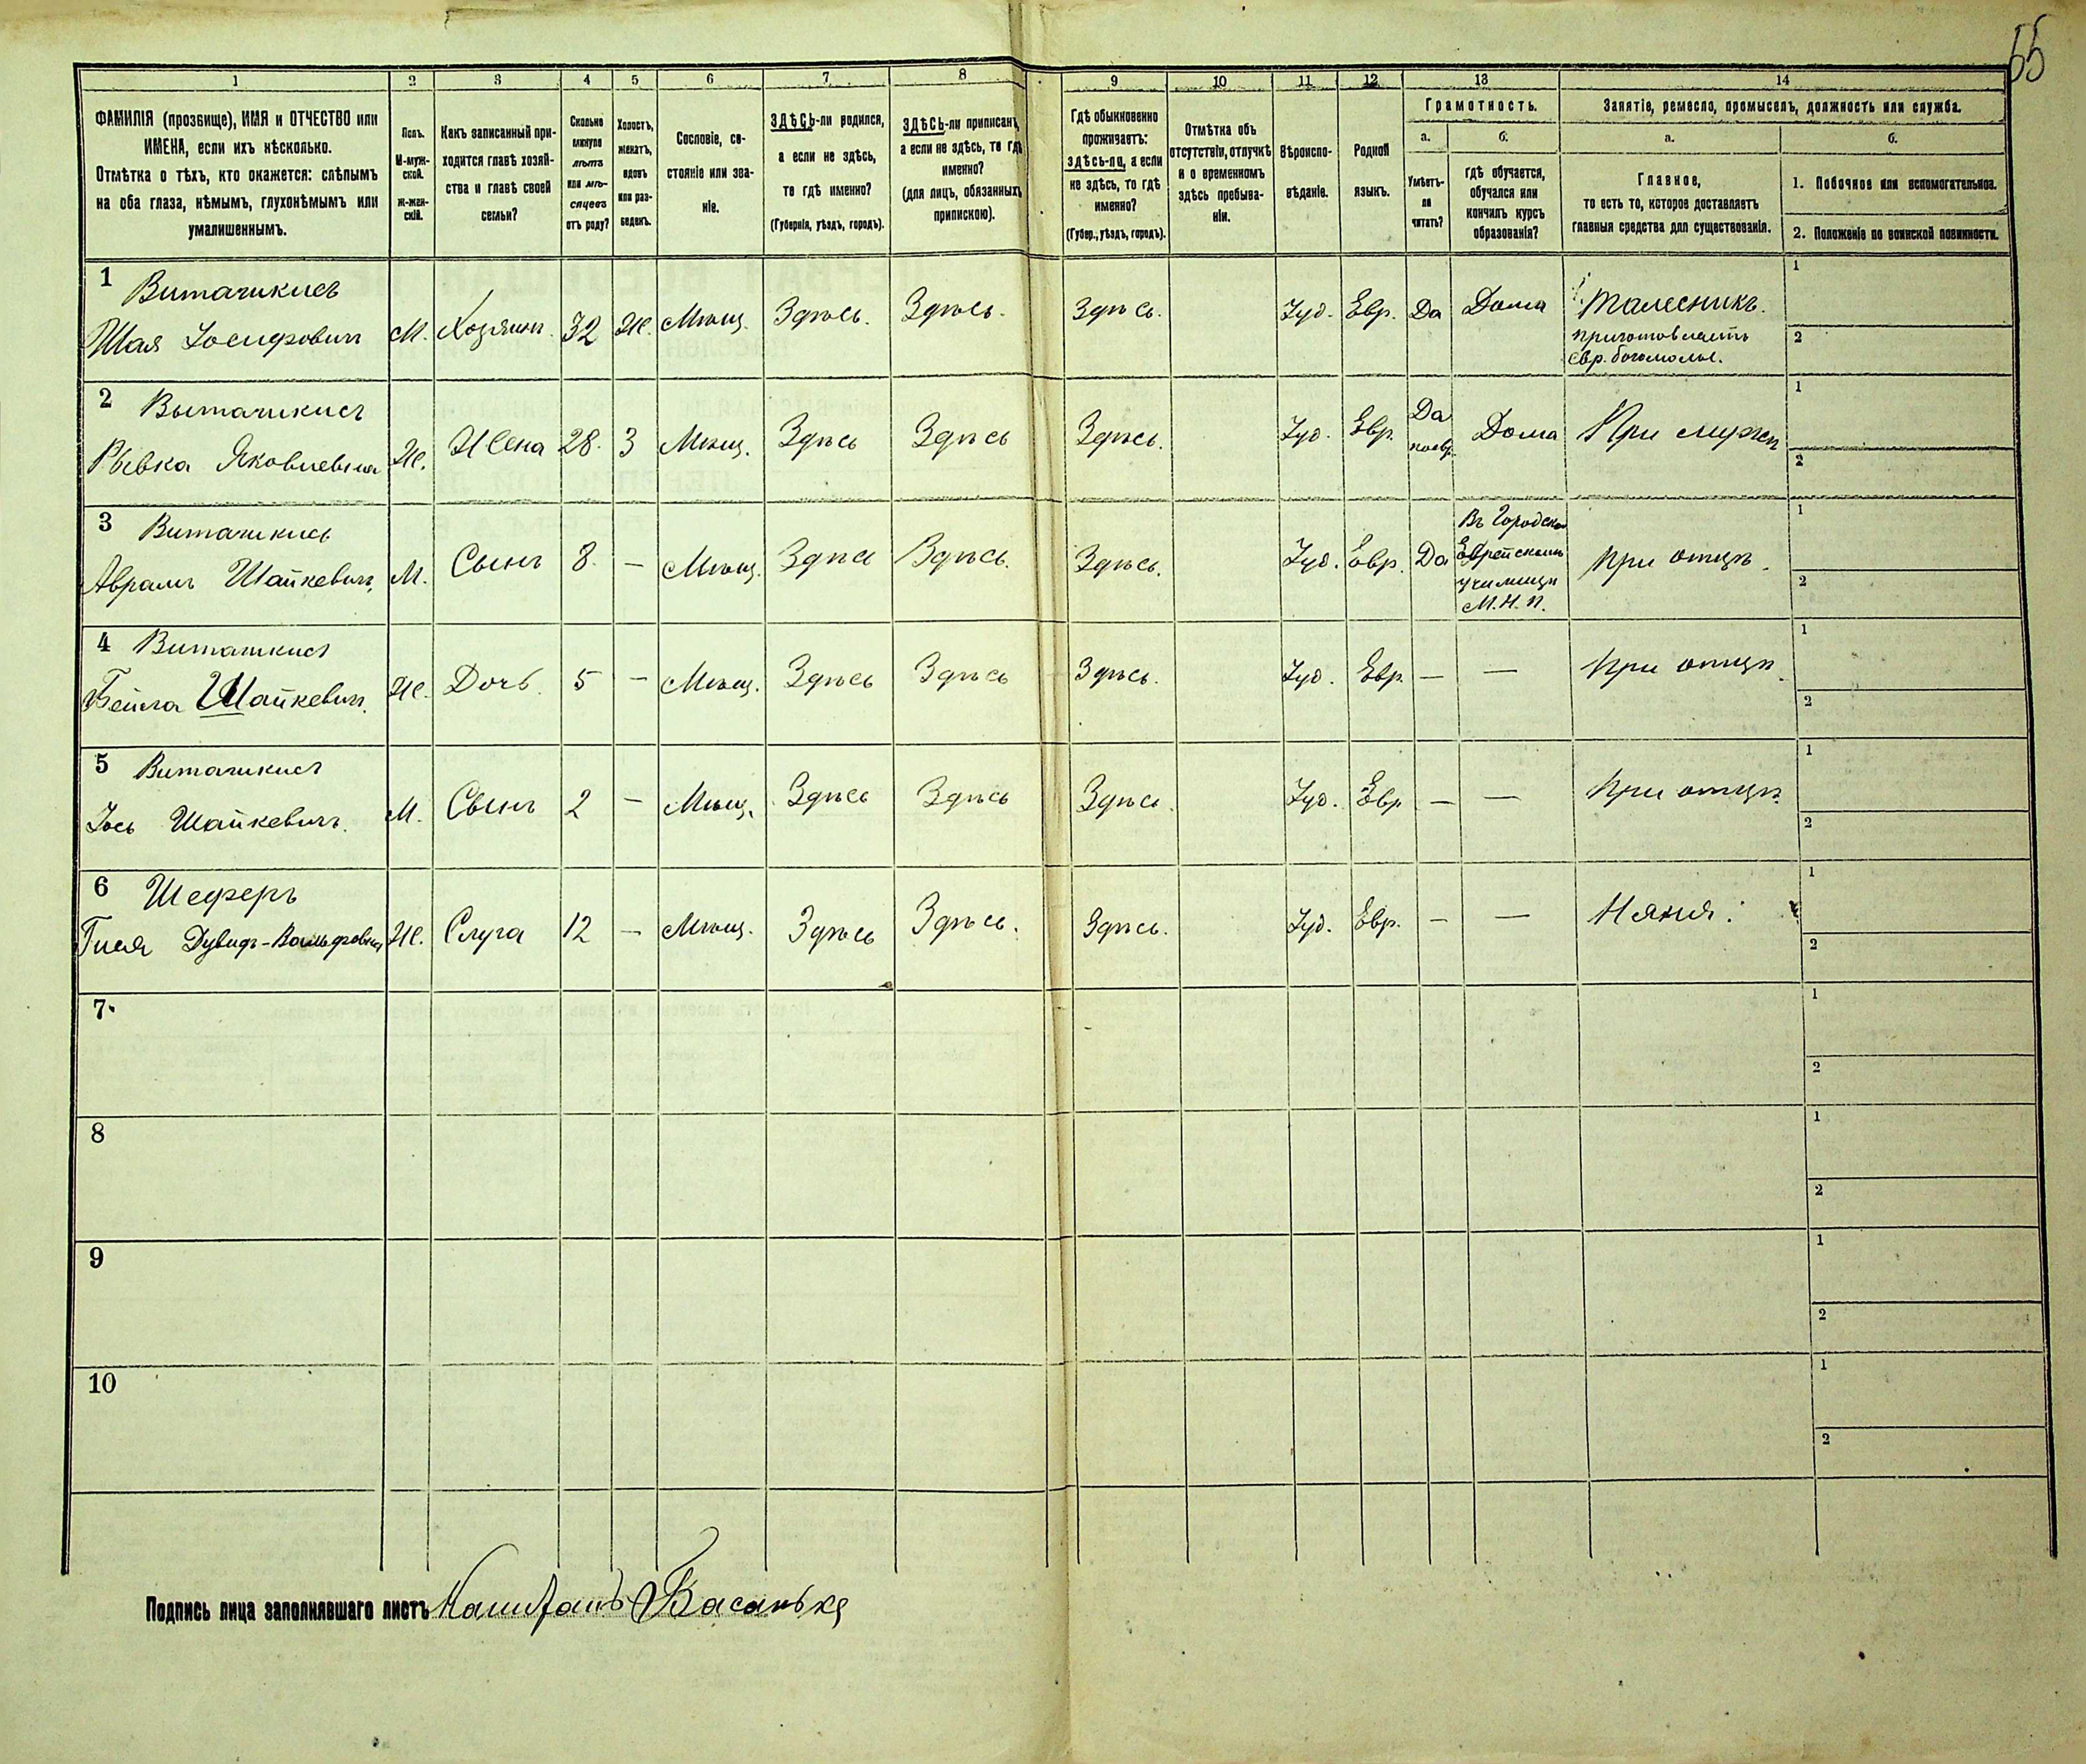 66
1 2 3 4 5 6 7 8 9 10 11 12 13 14
ФАМИЛІЯ (прозвище), ИМЯ и ОТЧЕСТВО или
ИМЕНА, если ихъ нѣсколько.
Отмѣтка о тѣхъ, кто окажется: слѣпымъ
на оба глаза, нѣмымъ, глухонѣмымъ или
умалишеннымъ.
Полъ.
М-муж-
ской.
Ж-жен-
скій.
Какъ записанный при-
ходится главѣ хозяй-
ства и главѣ своей
семьи?
Сколько
минуло
лѣтъ
или мѣ-
сяцевъ
отъ роду?
Холостъ,
женатъ,
вдовъ
или раз-
веденъ.
Сословіе, со-
стояніе или зва-
ніе.
ЗДѢСЬ-ли родился,
а если не здѣсь,
то гдѣ именно?
(Губернія, уѣздъ, городъ).
ЗДѢСЬ-ли приписанъ,
а если не здѣсь, то гдѣ
именно?
(для лицъ, обязанныхъ
припискою).
Гдѣ обыкновенно
проживаетъ:
здѣсь-ли, а если
не здѣсь, то гдѣ
именно?
(Губер., уѣздъ, городъ).
Отмѣтка объ
отсутствіи, отлучкѣ
и о временномъ
здѣсь пребыва-
ніи.
Вѣроиспо-
вѣданіе.
Родной
языкъ.
Грамотность.
а.
Умѣетъ-
ли
читать?
б.
гдѣ обучается,
обучался или
кончилъ курсъ
образованія?
Занятіе, ремесло, промыселъ, должность или служба.
а.
Главное,
то есть то, которое доставляетъ
главныя средства для существованія.
б.
1. Побочное или вспомогательное.
2. Положеніе по воинской повинности.
1 Виташкисъ
Шая Іосифович М. Хозяинъ 32 Ж. Мѣщ. Здѣсь. Здѣсь. Здѣсь. Іуд. Евр. Да Дома Талесникъ. 1
приготовляетъ 2
Евр. богомолье.
2 Выташкисъ
Рывка Яковлевна Ж. Жена 28. З Мѣщ. Здѣсь Здѣсь Здѣсь. Іуд. Евр. Да Дома При мужѣ 1
поевр. 2
3 Виташкисъ
Аврамъ Шайкевич. М. Сынъ 8. — Мѣщ. Здѣсь Здѣсь. Здѣсь. Іуд. Евр. Да При отцѣ. 1
Въ Городском
Еврейскомъ
училищѣ
М.Н.П. 2
4 Виташкисъ
Бейла Шайкевич. Ж. Дочь. 5 — Мѣщ. Здѣсь Здѣсь Здѣсь. Іуд. Евр. — — При отцѣ. 1
2
5 Виташкисъ
Іось Шайкевичъ. М. Сынъ 2 — Мѣщ. Здѣсь Здѣсь Здѣсь. Іуд. Евр — — При отцѣ. 1
2
6 Шеферъ
Гися Дувид-Вольфовна Ж. Слуга 12 — Мѣщ. Здѣсь Здѣсь. Здѣсь. Іуд. Евр. — — Няня. 1
2
7. 1
2
8 1
2
9 1
2
10 1
2
Подпись лица заполнявшаго листъ